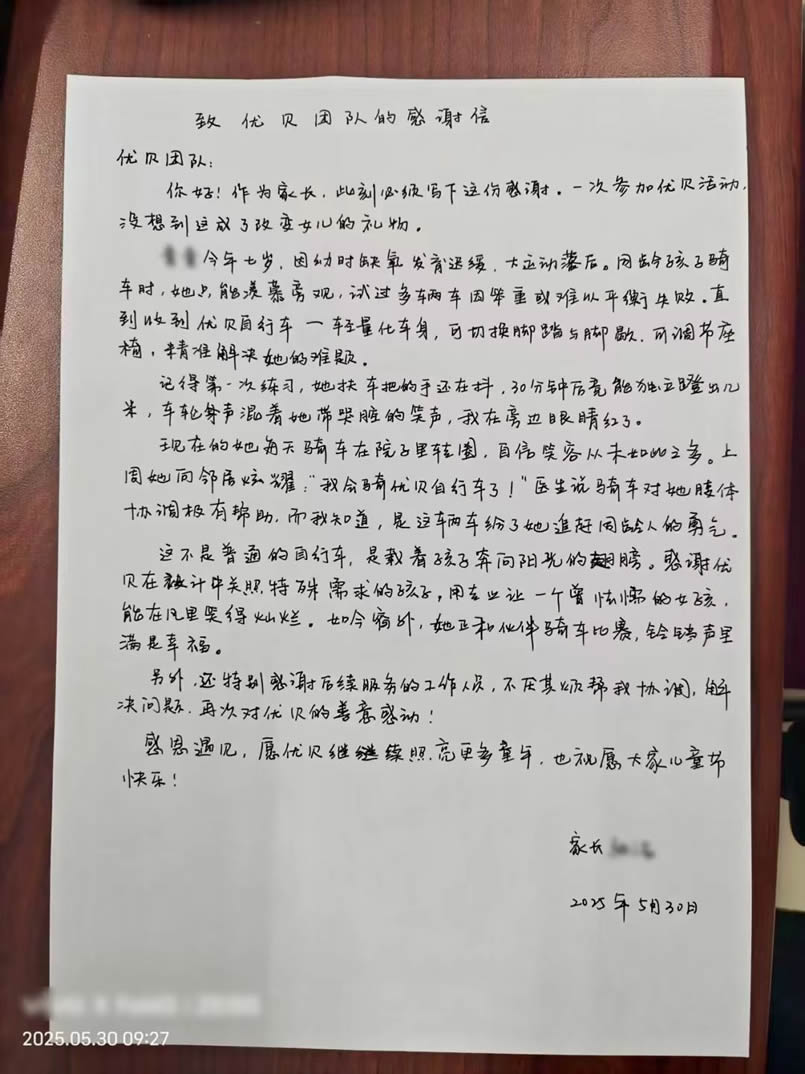 致优贝团队的感谢信
优贝团队：
你好！作为家长，此刻必须写下这份感谢。一次参加优贝活动，
没想到这成了改变女儿的礼物。
今年七岁，因幼时缺氧发育迟缓，大运动落后。同龄孩子骑
车时，她只能羡慕旁观，试过多辆车因笨重或难以平衡失败。直
到收到优贝自行车一轻量化车身，可切换脚踏与脚歇，可调节座
椅，精准解决她的难题。
记得第一次练习，她扶车把的手还在抖，30分钟后竟能独立蹬出几
米，车轮声混着她带哭腔的笑声，我在旁边眼睛红了。
现在的她每天骑车在院子里转圈，自信笑容从未如此之多。上
周她向邻居炫耀："我会骑优贝自行车了！"医生说骑车对她肢体
协调极有帮助，而我知道，是这车辆车给了她追赶同龄人的勇气。
这不是普通的自行车，是载着孩子奔向阳光的翅膀。感谢优
贝在设计中关照特殊需求的孩子，用专业让一个曾怯懦的女孩，
能在风里笑得灿烂。如今窗外，她正和伙伴骑车比赛，铃铛声里
满是幸福。
另外，还特别感谢后续服务的工作人员，不厌其烦帮我协调，解
决问题，再次对优贝的善意感动！
感恩遇见，愿优贝继续照亮更多童年，也祝愿大家儿童节
快乐！
家长
2025年5月30日
2025.05.30 09:27